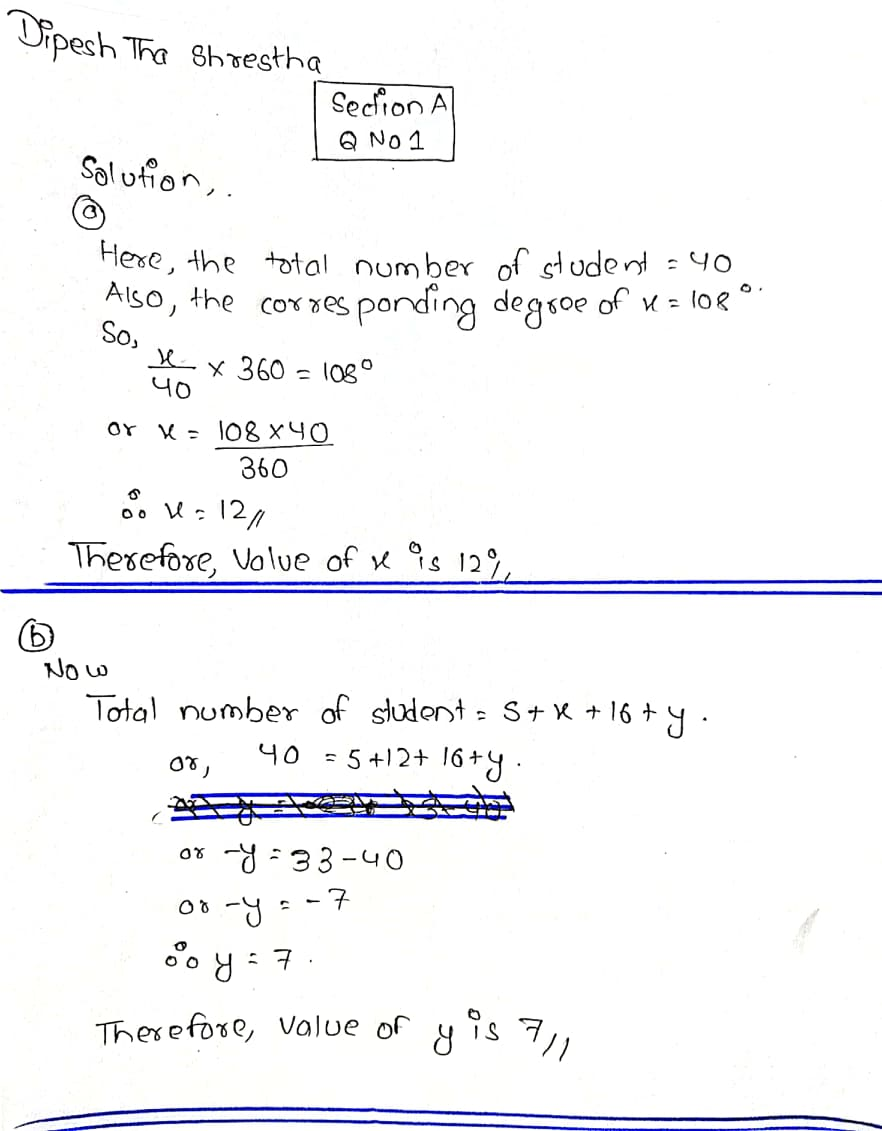 Dipesh Tha Shrestha
Section A
Q No 1
Solution,.
ⓐ
Here, the total number of student = 40
Also, the corresponding degree of x = 108°.
So,
x/40 × 360 = 108°
or x = 108 × 40
360
∴ x = 12//
Therefore, Value of x is 12//
ⓑ
Now
Total number of student = 5 + x + 16 + y.
or, 40 = 5 + 12 + 16 + y.
or -y = 33 - 40
or -y = -7
∴ y = 7.
Therefore, value of y is 7//